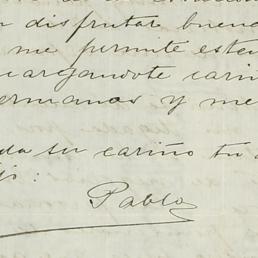 disfrutar buena
me permite esten
cargandote cari
hermanos y me
da su cariño tu
jo:
Pablo